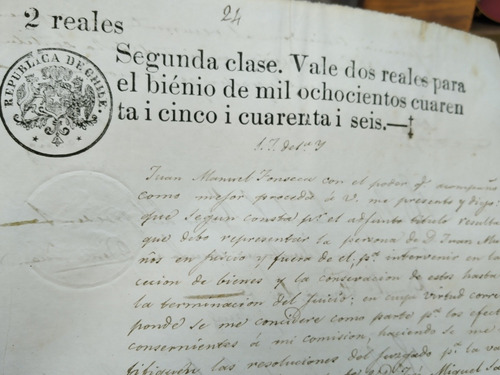 24
2 reales
REPUBLICA DE CHILE
Segunda clase. Vale dos reales para
el biénio de mil ochocientos cuaren
ta i cinco i cuarenta i seis.—
Juan Manuel Fonseca con el poder q.e acompaño
como mejor proceda á V. me presento y digo:
que segun consta p.r el adjunto titulo resulta
que debo representar la persona de D. Juan Mu
ños en juicio y fuera de el, p.a intervenir en la
cción de bienes y la conservacion de estos hasta
la terminacion del Juicio: en cuya virtud corres
ponde se me considere como parte p.a los efect
consernientes á mi comision, haciendo se me
las resoluciones del juzgado p.a la va
Miguel